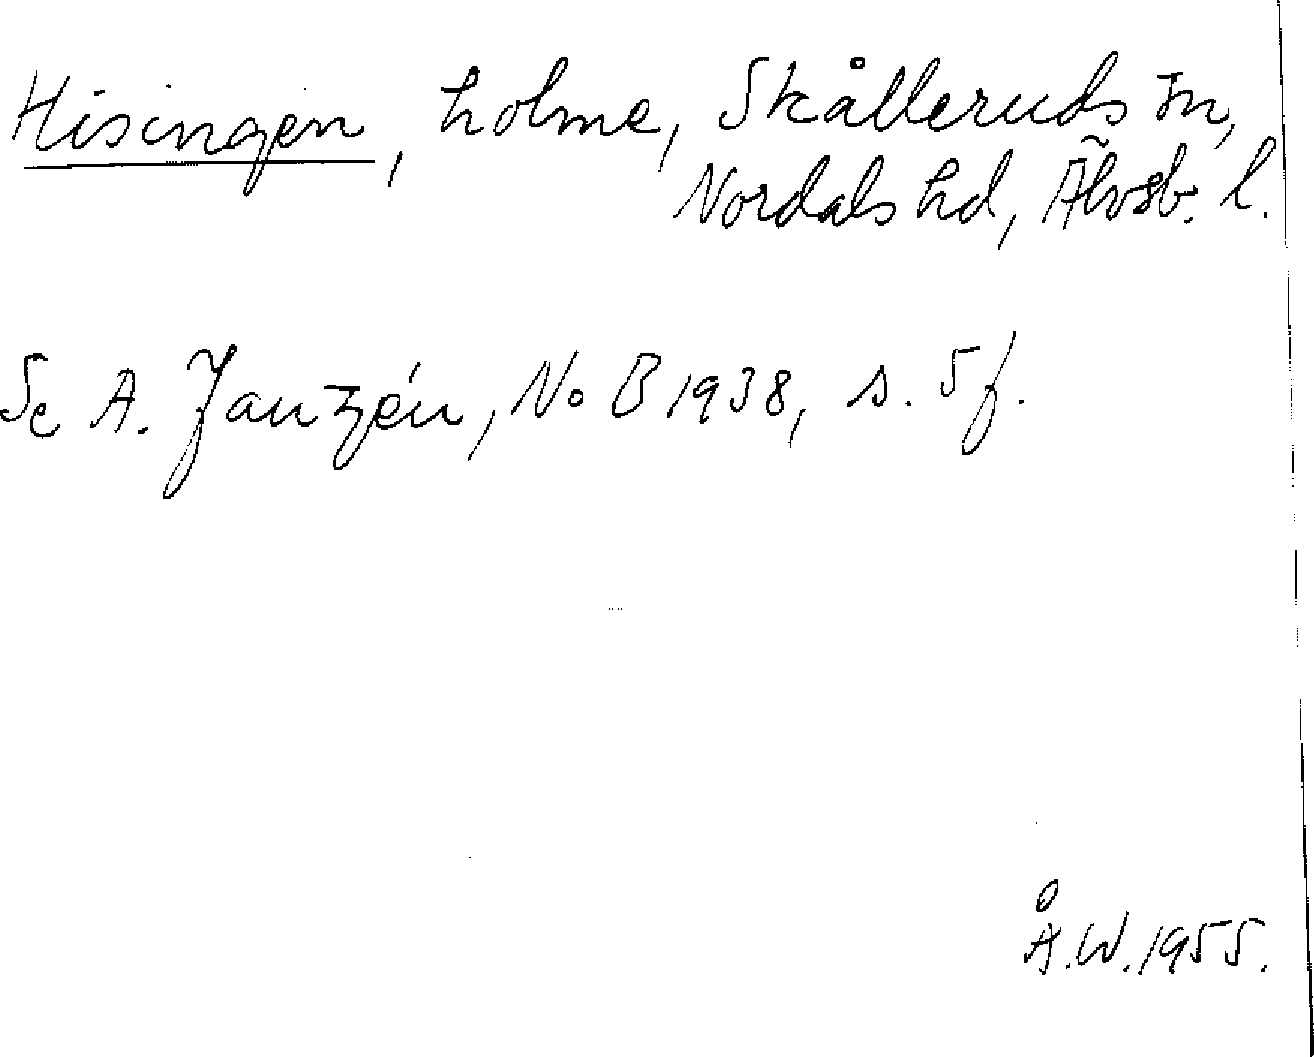 Hisingen, holme, Skålleruds sn,
Nordals hd, Älvsb. l.
Se A. Janzén, NoB 1938, s. 5f.
Å.W. 1955.